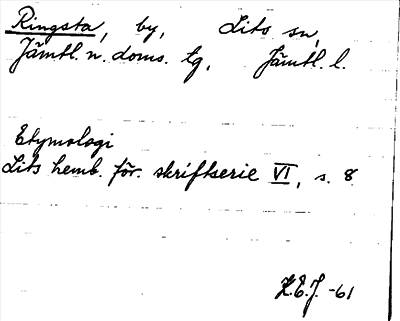 Ringsta, by, Lits sn,
Jämtl. n. doms. tg, Jämtl. l.
Etymologi
Lits hemb. för. skriftserie VI, s. 8
K.E.J. -61